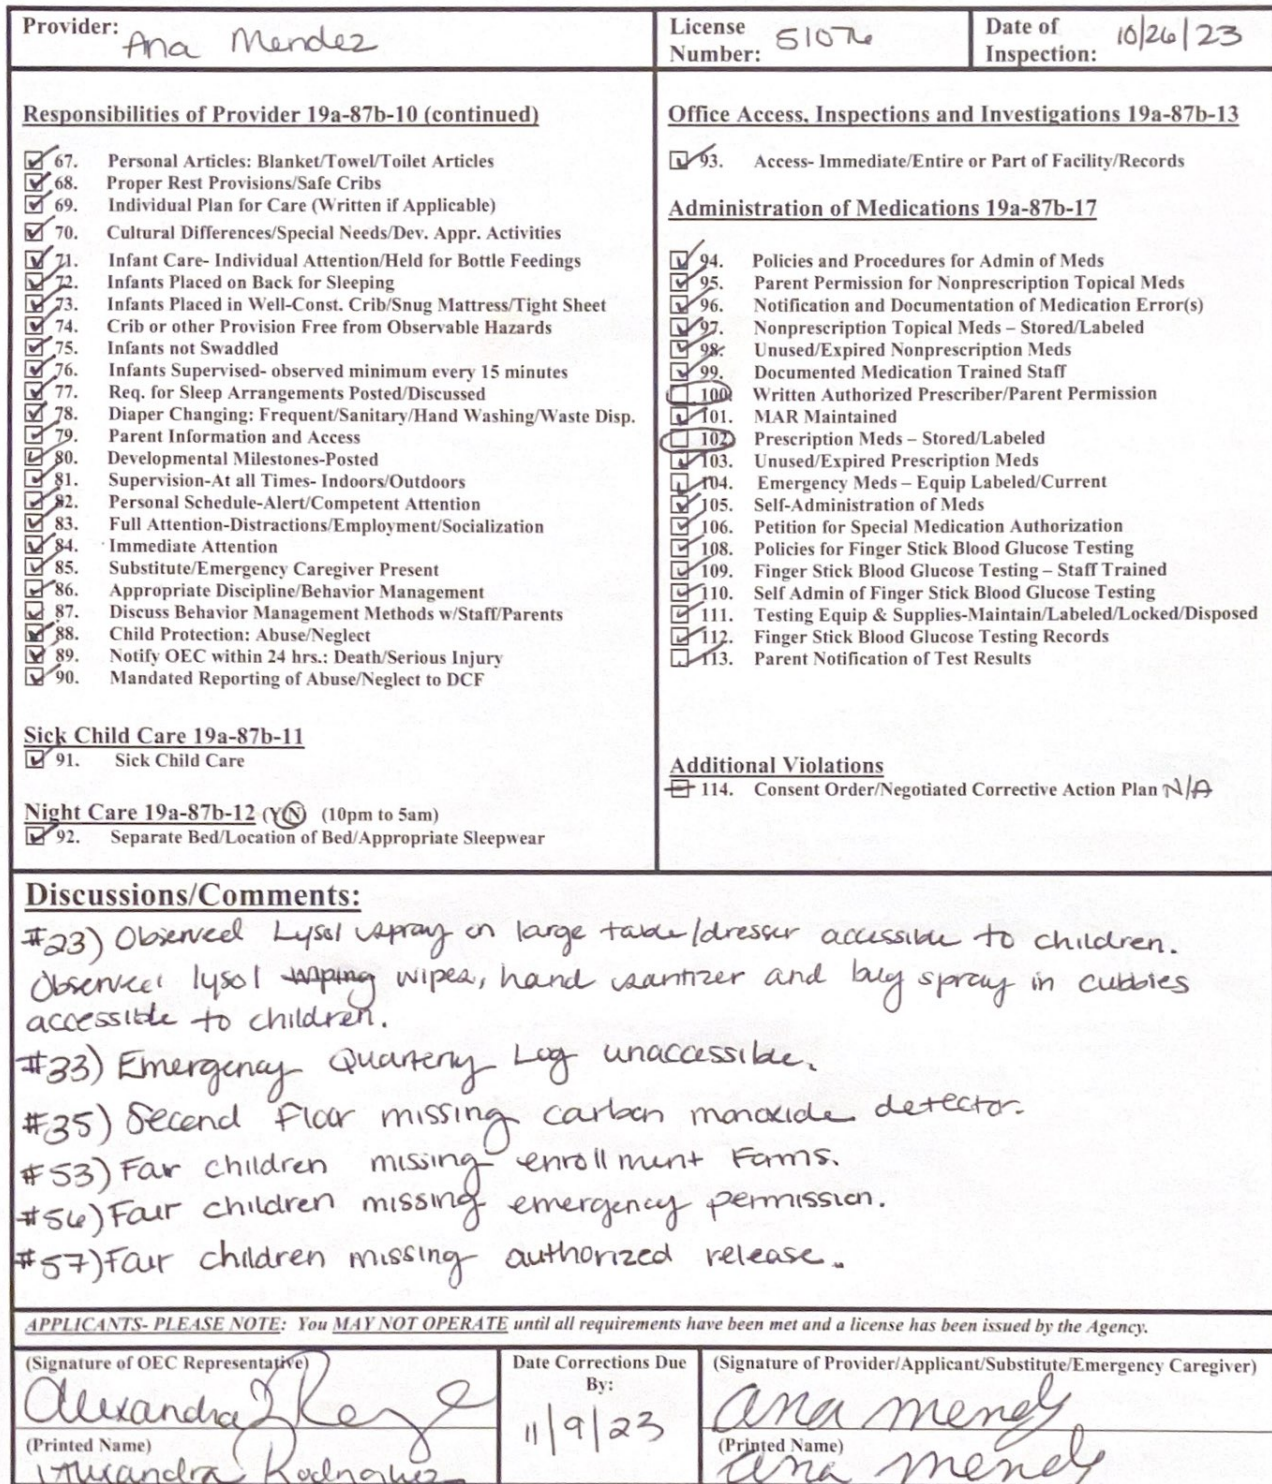 Provider: Ana Mendez
License Number: 51076
Date of Inspection: 10/26/23
Responsibilities of Provider 19a-87b-10 (continued)
67. Personal Articles: Blanket/Towel/Toilet Articles
68. Proper Rest Provisions/Safe Cribs
69. Individual Plan for Care (Written if Applicable)
70. Cultural Differences/Special Needs/Dev. Appr. Activities
71. Infant Care- Individual Attention/Held for Bottle Feedings
72. Infants Placed on Back for Sleeping
73. Infants Placed in Well-Const. Crib/Snug Mattress/Tight Sheet
74. Crib or other Provision Free from Observable Hazards
75. Infants not Swaddled
76. Infants Supervised- observed minimum every 15 minutes
77. Req. for Sleep Arrangements Posted/Discussed
78. Diaper Changing: Frequent/Sanitary/Hand Washing/Waste Disp.
79. Parent Information and Access
80. Developmental Milestones-Posted
81. Supervision-At all Times- Indoors/Outdoors
82. Personal Schedule-Alert/Competent Attention
83. Full Attention-Distractions/Employment/Socialization
84. Immediate Attention
85. Substitute/Emergency Caregiver Present
86. Appropriate Discipline/Behavior Management
87. Discuss Behavior Management Methods w/Staff/Parents
88. Child Protection: Abuse/Neglect
89. Notify OEC within 24 hrs.: Death/Serious Injury
90. Mandated Reporting of Abuse/Neglect to DCF
Sick Child Care 19a-87b-11
91. Sick Child Care
Night Care 19a-87b-12 (Y/N) (10pm to 5am)
92. Separate Bed/Location of Bed/Appropriate Sleepwear
Office Access, Inspections and Investigations 19a-87b-13
93. Access- Immediate/Entire or Part of Facility/Records
Administration of Medications 19a-87b-17
94. Policies and Procedures for Admin of Meds
95. Parent Permission for Nonprescription Topical Meds
96. Notification and Documentation of Medication Error(s)
97. Nonprescription Topical Meds – Stored/Labeled
98. Unused/Expired Nonprescription Meds
99. Documented Medication Trained Staff
100. Written Authorized Prescriber/Parent Permission
101. MAR Maintained
102. Prescription Meds – Stored/Labeled
103. Unused/Expired Prescription Meds
104. Emergency Meds – Equip Labeled/Current
105. Self-Administration of Meds
106. Petition for Special Medication Authorization
108. Policies for Finger Stick Blood Glucose Testing
109. Finger Stick Blood Glucose Testing – Staff Trained
110. Self Admin of Finger Stick Blood Glucose Testing
111. Testing Equip & Supplies-Maintain/Labeled/Locked/Disposed
112. Finger Stick Blood Glucose Testing Records
113. Parent Notification of Test Results
Additional Violations
114. Consent Order/Negotiated Corrective Action Plan N/A
Discussions/Comments:
#23) Observed Lysol spray on large table/dresser accessible to children.
Observed lysol wiping wipes, hand santizer and bug spray in cubbies
accessible to children.
#33) Emergency Quarterly Log unaccessible.
#35) Second Floor missing carbon monoxide detector.
#53) Four children missing enrollment forms.
#56) Four children missing emergency permission.
#57) Four children missing authorized release.
APPLICANTS- PLEASE NOTE: You MAY NOT OPERATE until all requirements have been met and a license has been issued by the Agency.
(Signature of OEC Representative)
Alexandra
(Printed Name)
Alexandra Rodriguez
Date Corrections Due
By:
11/9/23
(Signature of Provider/Applicant/Substitute/Emergency Caregiver)
ana mendz
(Printed Name)
ana mendz